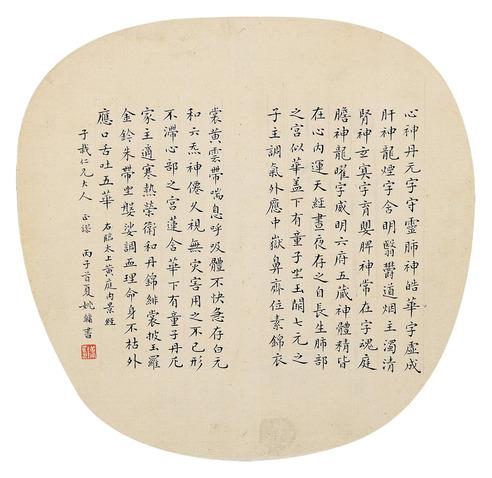 心神丹元字守靈肺神皓華字虛成
肝神龍煙字含明翳鬱道烟主濁清
腎神玄冥字育嬰脾神常在字魂庭
膽神龍曜字威明六府五藏神體精皆
在心內運天經晝夜存之自長生肺部
之宮似華蓋下有童子坐玉闕七元之
子主調氣外應中嶽鼻齊位素錦衣
裳黃雲帶喘息呼吸體不快急存白元
和六炁神僊久視無灾害用之不已形
不滯心部之宮蓮含華下有童子丹元
家主適寒熱榮衛和丹錦緋裳披玉羅
金鈴朱帶坐婆娑調血理命身不枯外
應口舌吐五華 右臨太上黃庭內景經
于我仁兄大人 正謬 丙子首夏姚 書